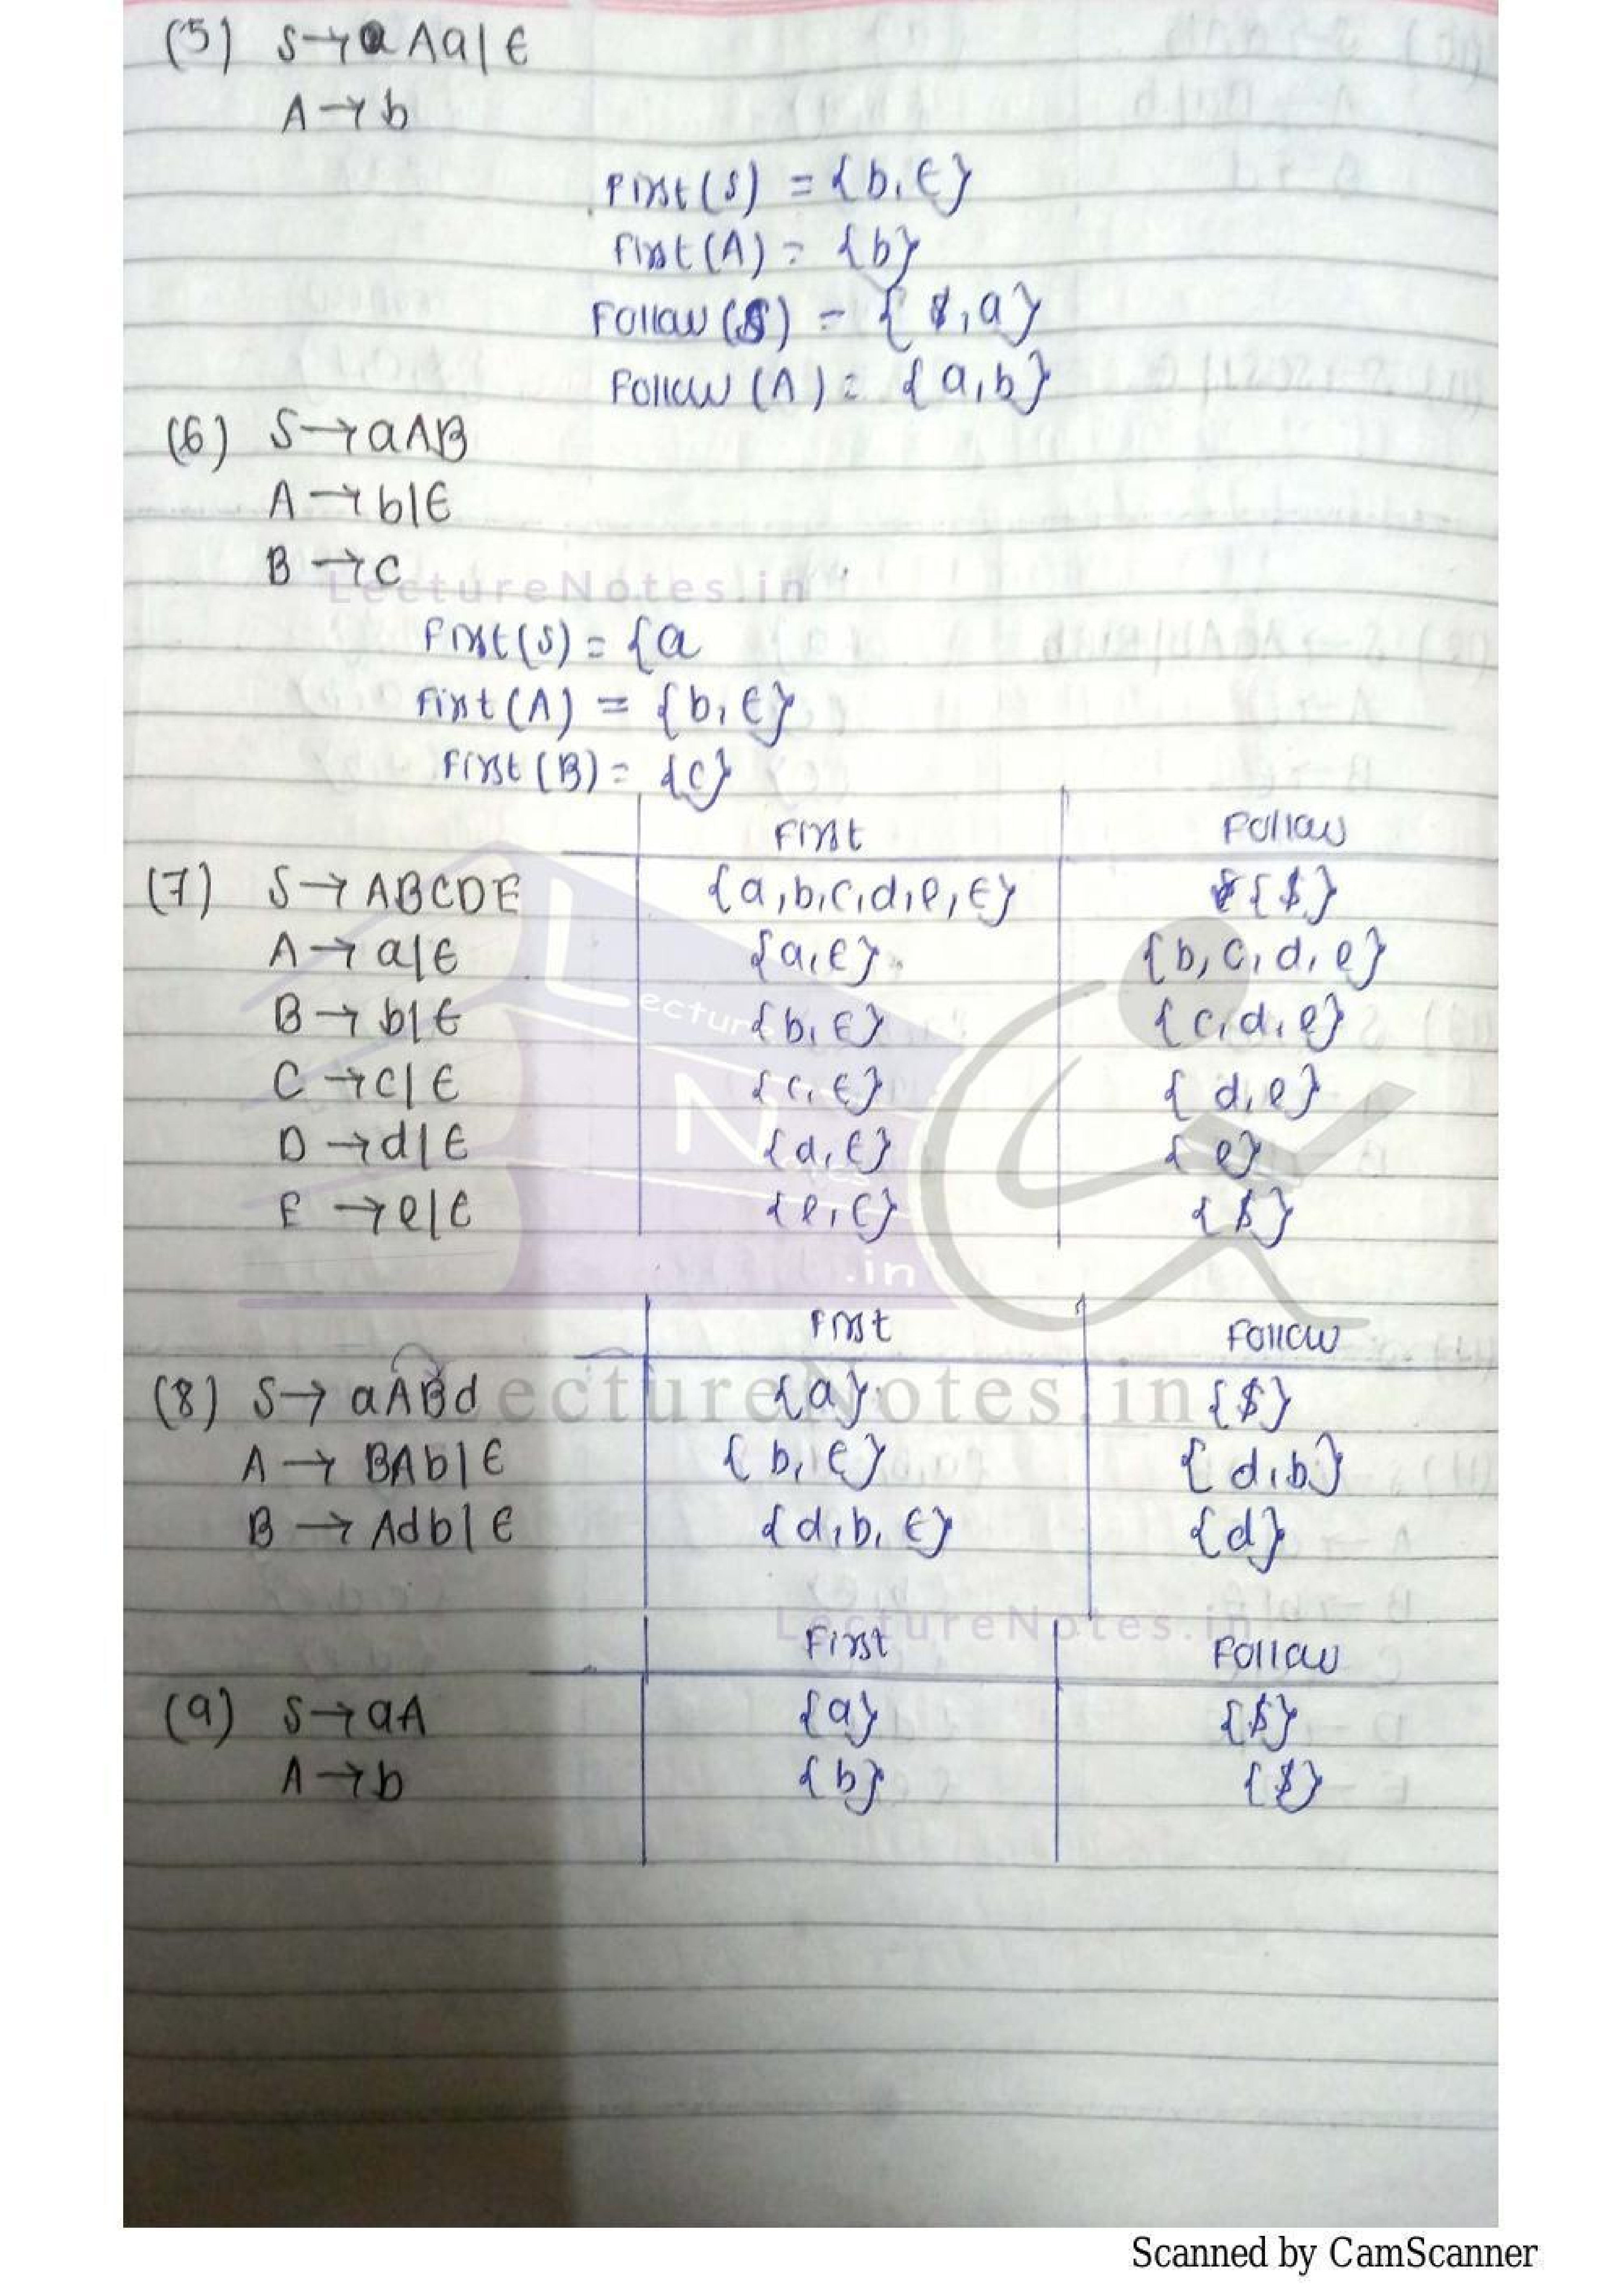 (5) S→aAa|ϵ
A→b
First(S) = {b,ϵ}
First(A) = {b}
Follow(S) = { $,a}
Follow(A) = {a,b}
(6) S→aAB
A→b|ϵ
B→c
LectureNotes.in
First(S) = {a
First(A) = {b,ϵ}
First(B) = {c}
First Follow
(7) S→ABCDE {a,b,c,d,e,ϵ} {$}
A→a|ϵ {a,ϵ} {b,c,d,e}
B→b|ϵ {b,ϵ} {c,d,e}
C→c|ϵ {c,ϵ} {d,e}
D→d|ϵ {d,ϵ} {e}
E→e|ϵ {e,ϵ} {$}
.in
First Follow
(8) S→aABd {a} {$}
LectureNotes.in
A→BAb|ϵ {b,ϵ} {d,b}
B→Adb|ϵ {d,b,ϵ} {d}
LectureNotes.in
First Follow
(9) S→aA {a} {$}
A→b {b} {$}
Scanned by CamScanner